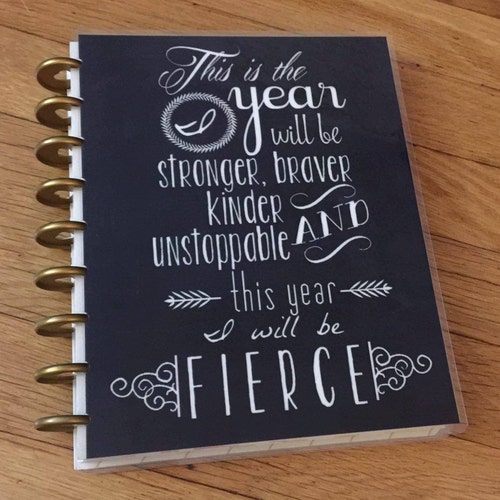 This is the
year
I
will be
stronger, braver
kinder
unstoppable AND
this year
I will be
FIERCE